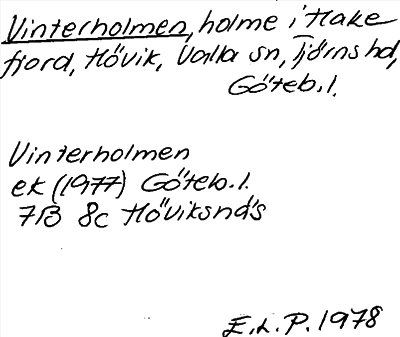 Vinterholmen, holme i Hake
fjord, Hövik, Valla sn, Tjörns hd,
Göteb. l.
Vinterholmen
ek (1977) Göteb. l.
7B 8c Höviksnäs
E. L. P. 1978